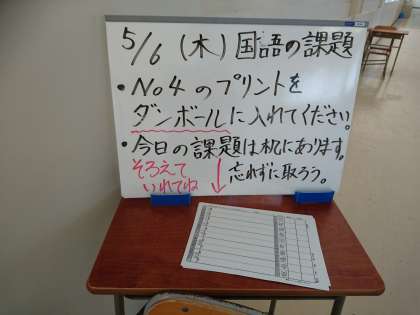 5/6 (木) 国語の課題
• No4 のプリントを
ダンボールに入れてください。
• 今日の課題は机にあります。
そろえて
いれてね
忘れずに取ろう。